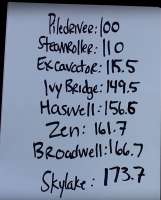 Piledriver: 100
Steamroller: 110
Excavator: 115.5
Ivy Bridge: 149.5
Haswell: 156.6
Zen: 161.7
Broadwell: 166.7
Skylake: 173.7